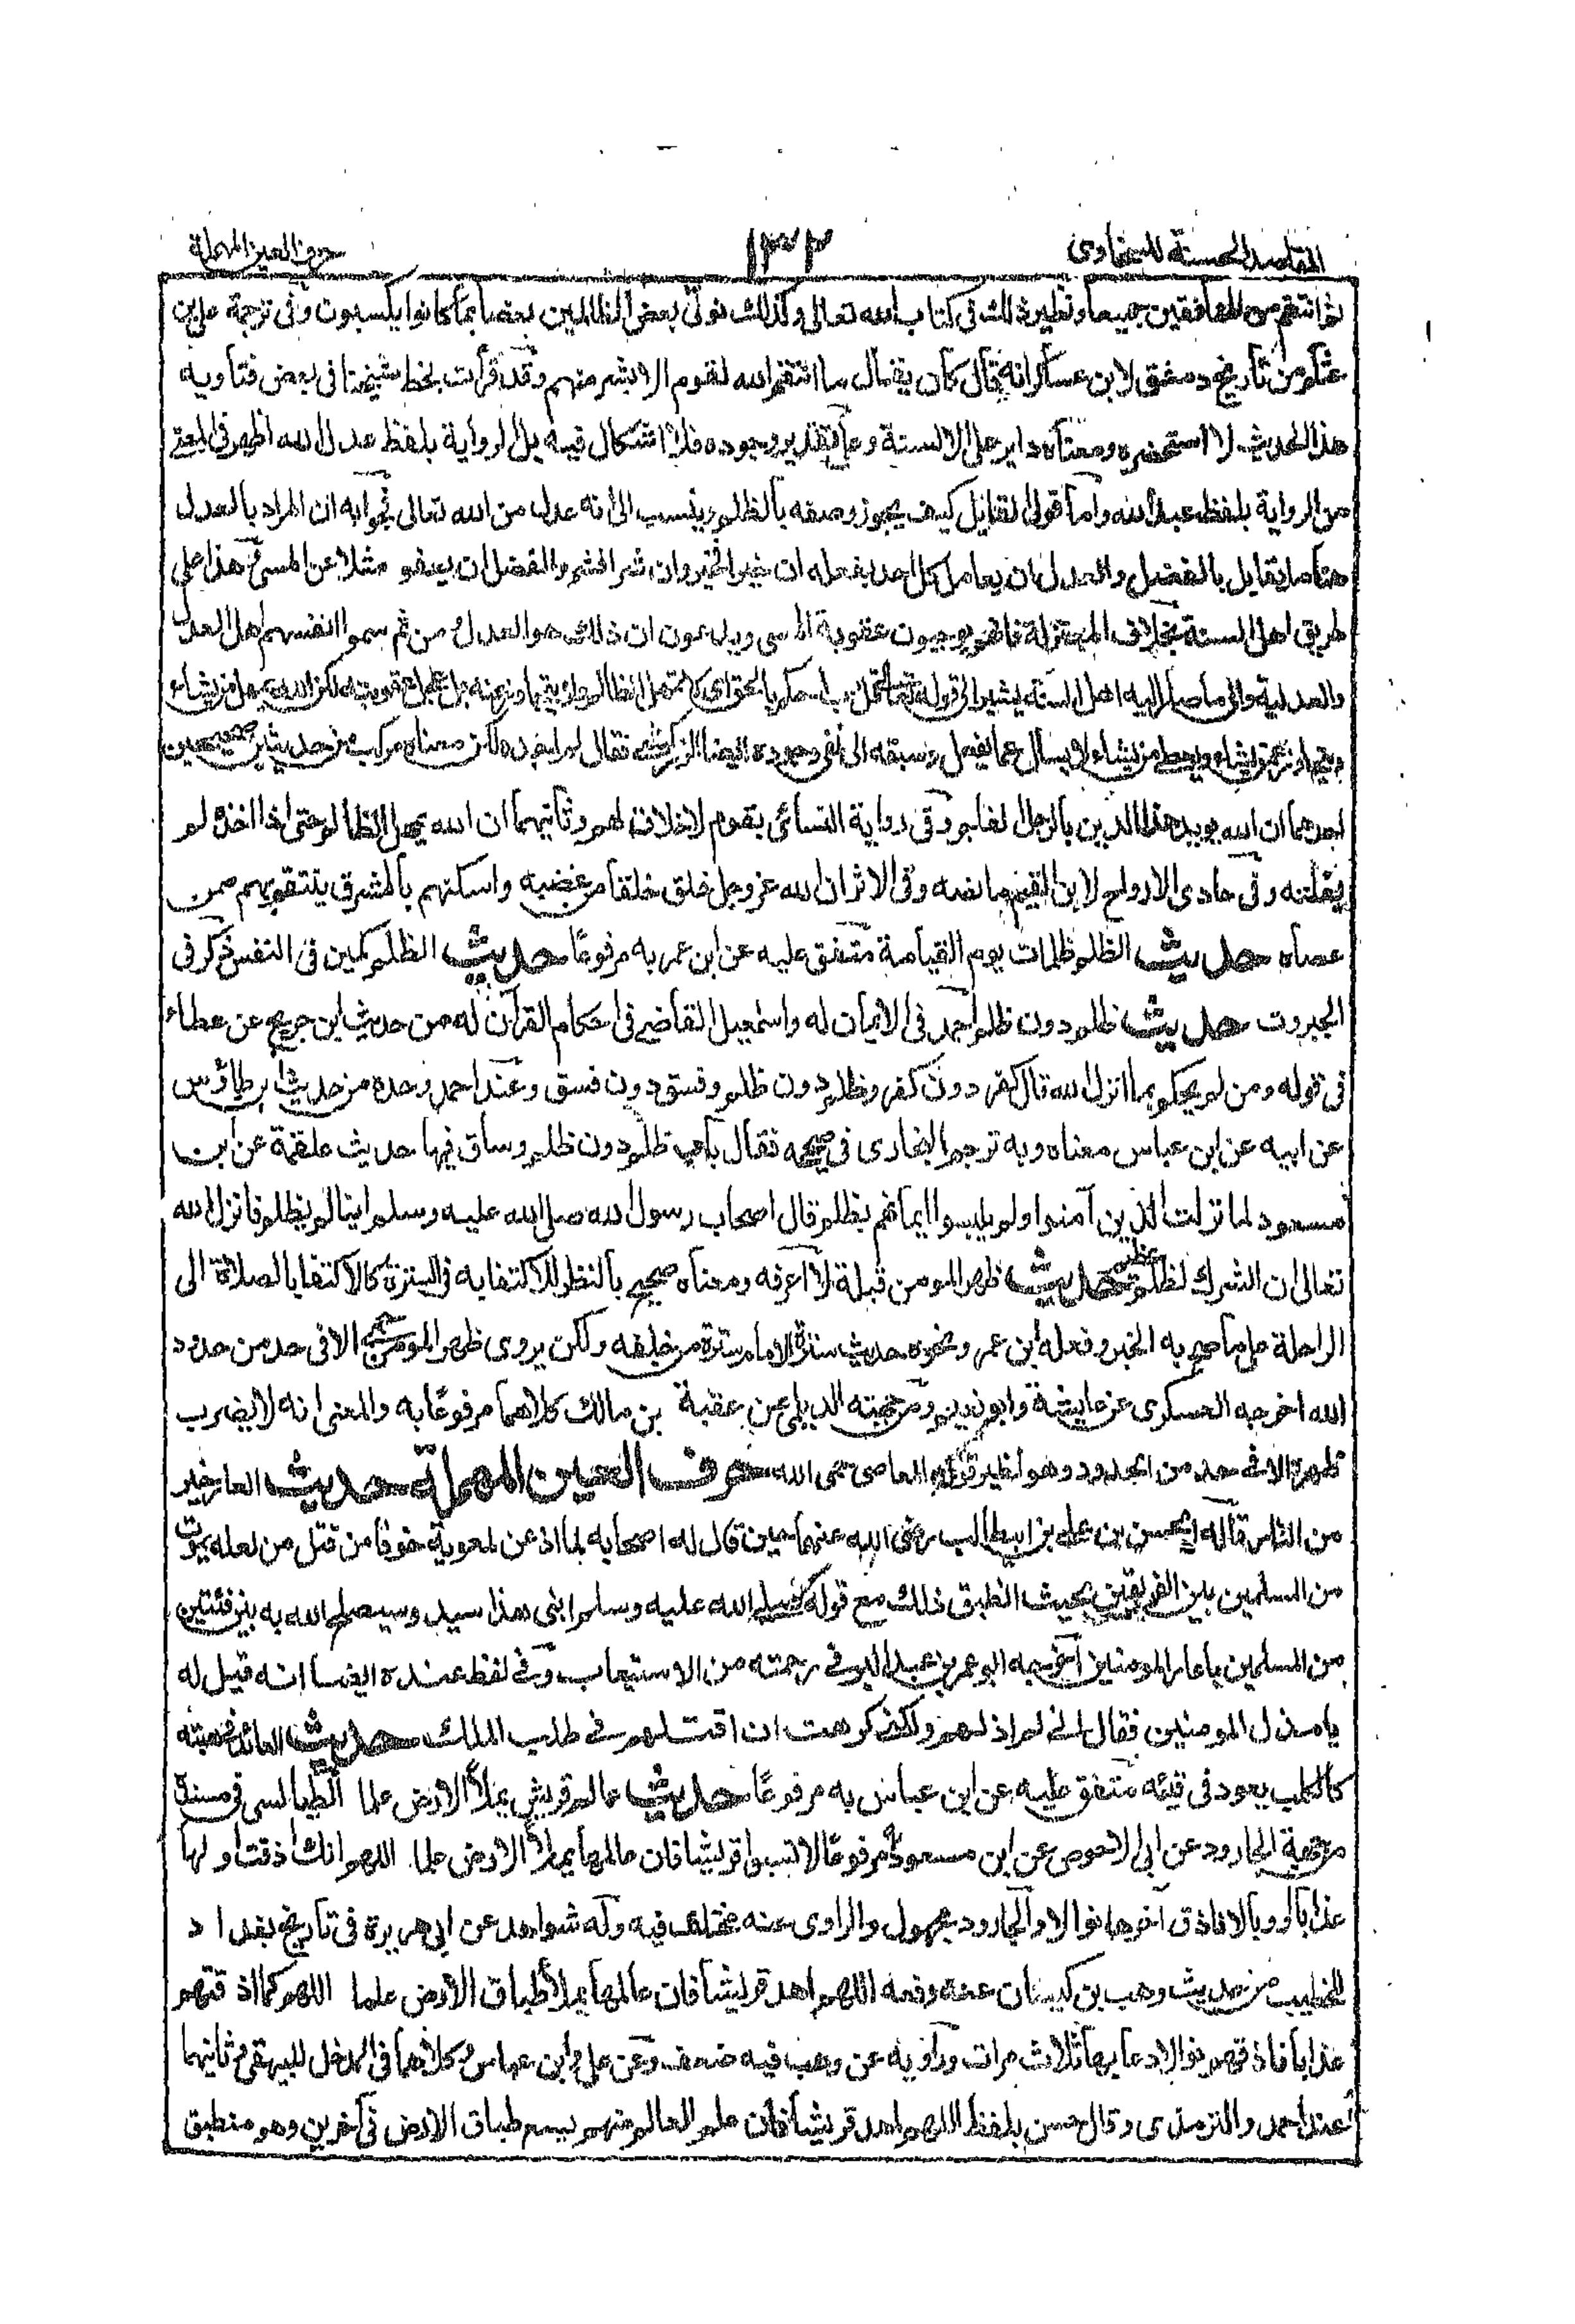 المقاصد الحسنة للسخاوى
١٣٢
حرف العين المهملة
ثم انتقم من المنافقين جميعا ونظير ذلك فى كتاب الله تعالى وكذلك نولى بعض الظالمين بعضا بما كانوا يكسبون وفى ترجمة على بن
عثام من تاريخ دمشق لابن عساكر انه قال كان يقال ما انتقم الله لقوم الا بشر منهم وقد قرأت بخط شيخنا فى بعض فتاويه
هذا الحديث لا استحضره ومعناه داير على الالسنة وعلى تقدير وجوده فلا اشكال فيه بل الرواية بلفظ عدل الله اظهر فى المعنى
من الرواية بلفظ عبد الله واما قول القايل كيف يجوز وصفه بالظلم وينسب الى انه عدل من الله تعالى فجوابه ان المراد بالعدل
هنا ما يقابل بالفضل والعدل ان يعامل كل احد بفعله ان خيرا فخير وان شرا فشر والفضل ان يعفو مثلا عن المسئ هذا على
طريق اهل السنة بخلاف المعتزلة فانهم يوجبون عقوبة المسى ويدعون ان ذلك هو العدل ومن ثم سموا انفسهم اهل العدل
والعدلية والى ما صار اليه اهل السنة يشير الى قوله تعالى قل رب احكم بالحق اى لا تمهل الظالم ولا يتجاوز عنه بل عجل عقوبته لكن الله يمهل من يشاء
ويتجاوز عمن يشاء ويعطى من يشاء لا يسأل عما يفعل وسبقه الى نفى وجوده ايضا الزركشى فقال لم اجده لكن معناه مركب من حديثين صحيحين
احدهما ان الله يويد هذا الدين بالرجل الفاجر وفى رواية النسائى بقوم لا خلاق لهم وثانيهما ان الله يمهل الظالم حتى اذا اخذه لم
يفلته وفى حادى الارواح لابن القيم ما نصه وفى الاثر ان الله عز وجل خلق خلقا من غضبه واسكنهم بالمشرق ينتقم بهم ممن
عصاه حديث الظلم ظلمات يوم القيامة متفق عليه عن ابن عمر به مرفوعًا حديث الظلم كمين فى النفس ذكر فى
الجبروت حديث ظلم دون ظلم احمد فى الايمان له واسمعيل القاضى فى احكام القرآن له من حديث ابن جريج عن عطاء
فى قوله ومن لم يحكم بما انزل الله قال كفر دون كفر وظلم دون ظلم وفسق دون فسق وعند احمد وحده من حديث ابن طاؤس
عن ابيه عن ابن عباس معناه وبه ترجم البخارى فى صحيحه فقال باب ظلم دون ظلم وساق فيها حديث علقمة عن ابن
مسعود لما نزلت الذين آمنوا ولم يلبسوا ايمانهم بظلم قال اصحاب رسول الله صلى الله عليه وسلم اينا لم يظلم فانزل الله
تعالى ان الشرك لظلم عظيم حديث ظهر المومن قبلة لا اعرفه ومعناه صحيح بالنظر للاكتفا به فى السترة كالاكتفا بالصلاة الى
الراحلة على ما صح به الخبر وفعله ابن عمر ونحوه حديث سترة الامام سترة من خلفه ولكن يروى ظهر المومن حمى الا فى حد من حدود
الله اخرجه العسكرى عن عايشة وابو نعيم ومن جهته الديلمى عن عقبة بن مالك كلاهما مرفوعًا به والمعنى انه لا يضرب
ظهره الا فى حد من الحدود وهو نظير قوله المعاصى حمى الله حرف العين المهملة حديث العار خير
من النار قاله الحسن بن على بن ابى طالب رضى الله عنهما حين قال له اصحابه لما اذعن لمعوية خوفا من قتل من لعله يموت
من المسلمين بين الفريقين بحيث انطبق ذلك مع قوله صلى الله عليه وسلم ابنى هذا سيد وسيصلح الله به بين فئتين
من المسلمين يا عار المومنين اخرجه ابو عمر بن عبد البر فى ترجمته من الاستيعاب وفى لفظ عنده ايضا انه قيل له
يا مذل المومنين فقال انى لم اذلهم ولكنى كرهت ان اقتلهم فى طلب الملك حديث العائد فى هبته
كالكلب يعود فى قيئه متفق عليه عن ابن عباس به مرفوعًا حديث عالم قريش يملأ الارض علما الطيالسى فى مسنده
من جهة الجارود عن ابى الاحوص عن ابن مسعود مرفوعًا لا تسبوا قريشا فان عالمها يملأ الارض علما اللهم انك اذقت اولها
عذابا او وبالا فاذق آخرها نوالا والجارود مجهول والراوى عنه مختلف فيه وله شواهد عن ابى هريرة فى تاريخ بغداد
للخطيب من حديث وهب بن كيسان عنه رفعه اللهم اهد قريشا فان عالمها يملأ طباق الارض علما اللهم كما اذقتهم
عذابا فاذقهم نوالا دعا بها ثلاث مرات وراويه عن وهب فيه ضعف وعن على وابن عباس وكلاهما فى المدخل للبيهقى وثانيهما
عند احمد والترمذى وقال حسن بلفظ اللهم اهد قريشا فان علم العالم منهم يسع طباق الارض فى آخرين وهو منطبق